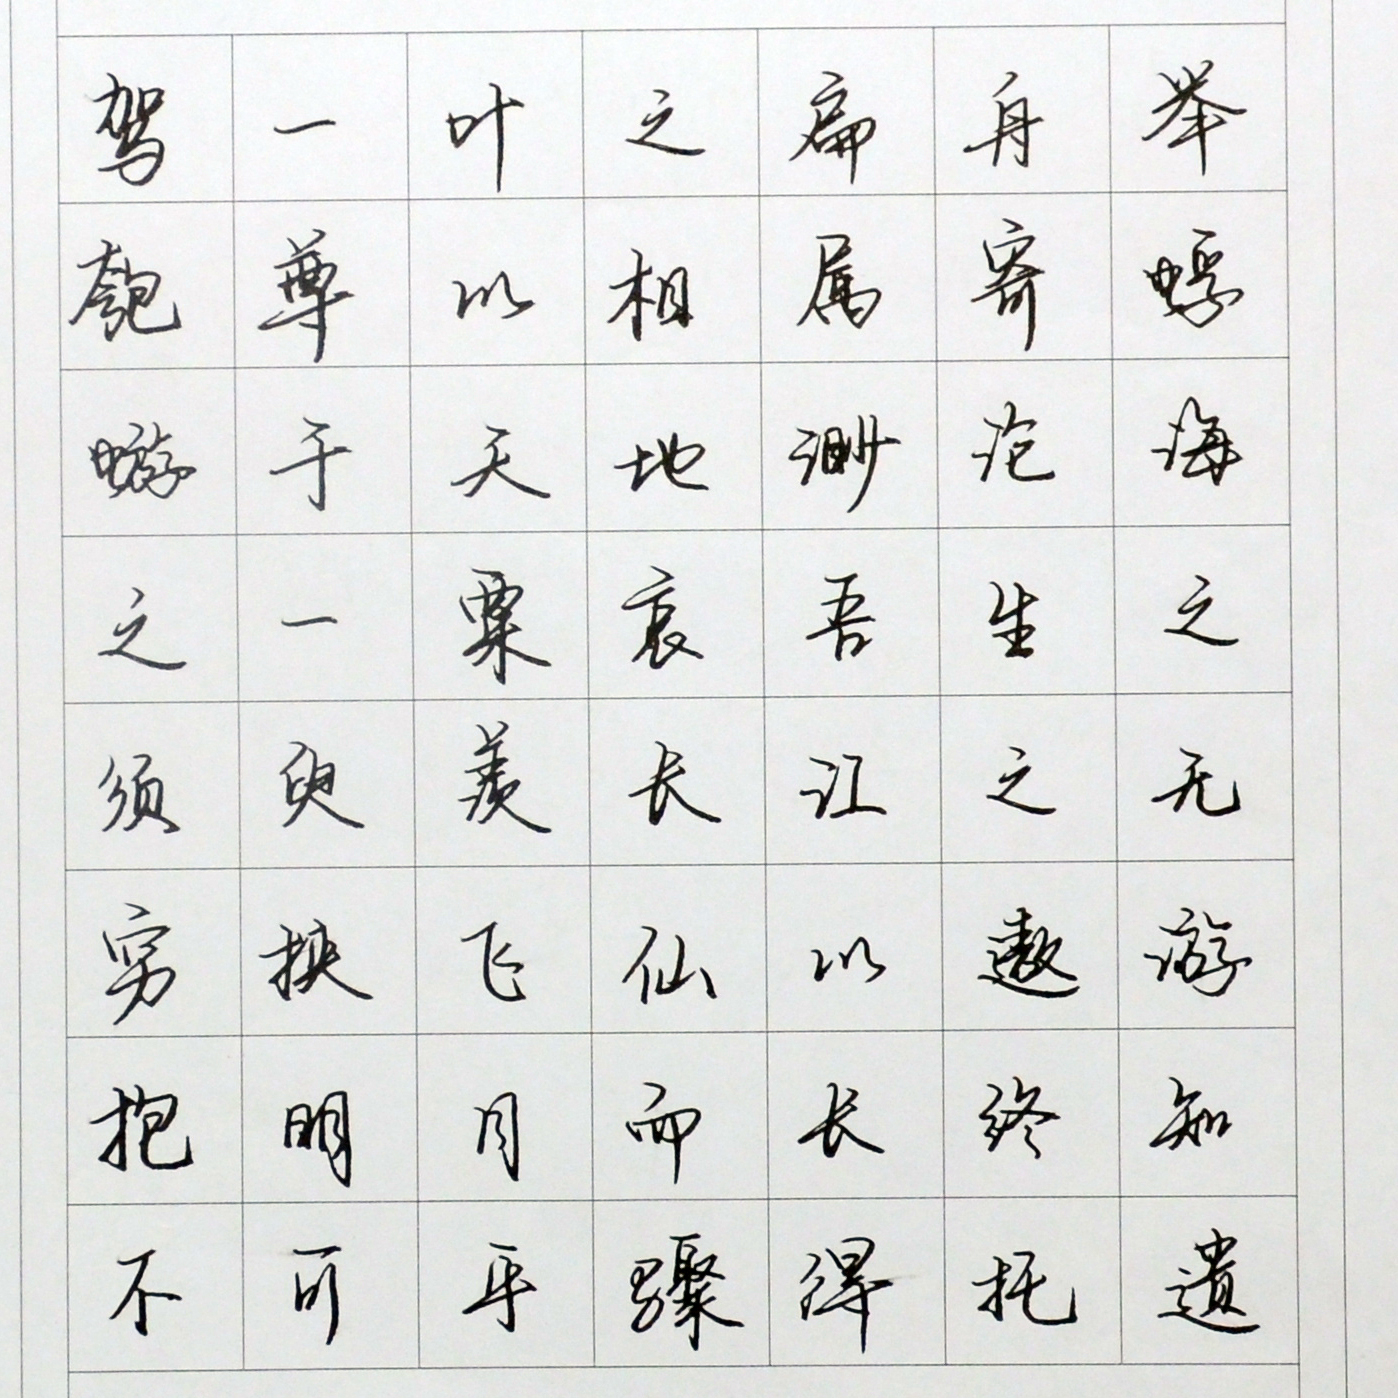 驾一叶之扁舟举
匏尊以相属寄蜉
蝣于天地渺沧海
之一粟哀吾生之
须臾羡长江之无
穷挟飞仙以遨游
抱明月而长终知
不可乎骤得托遗